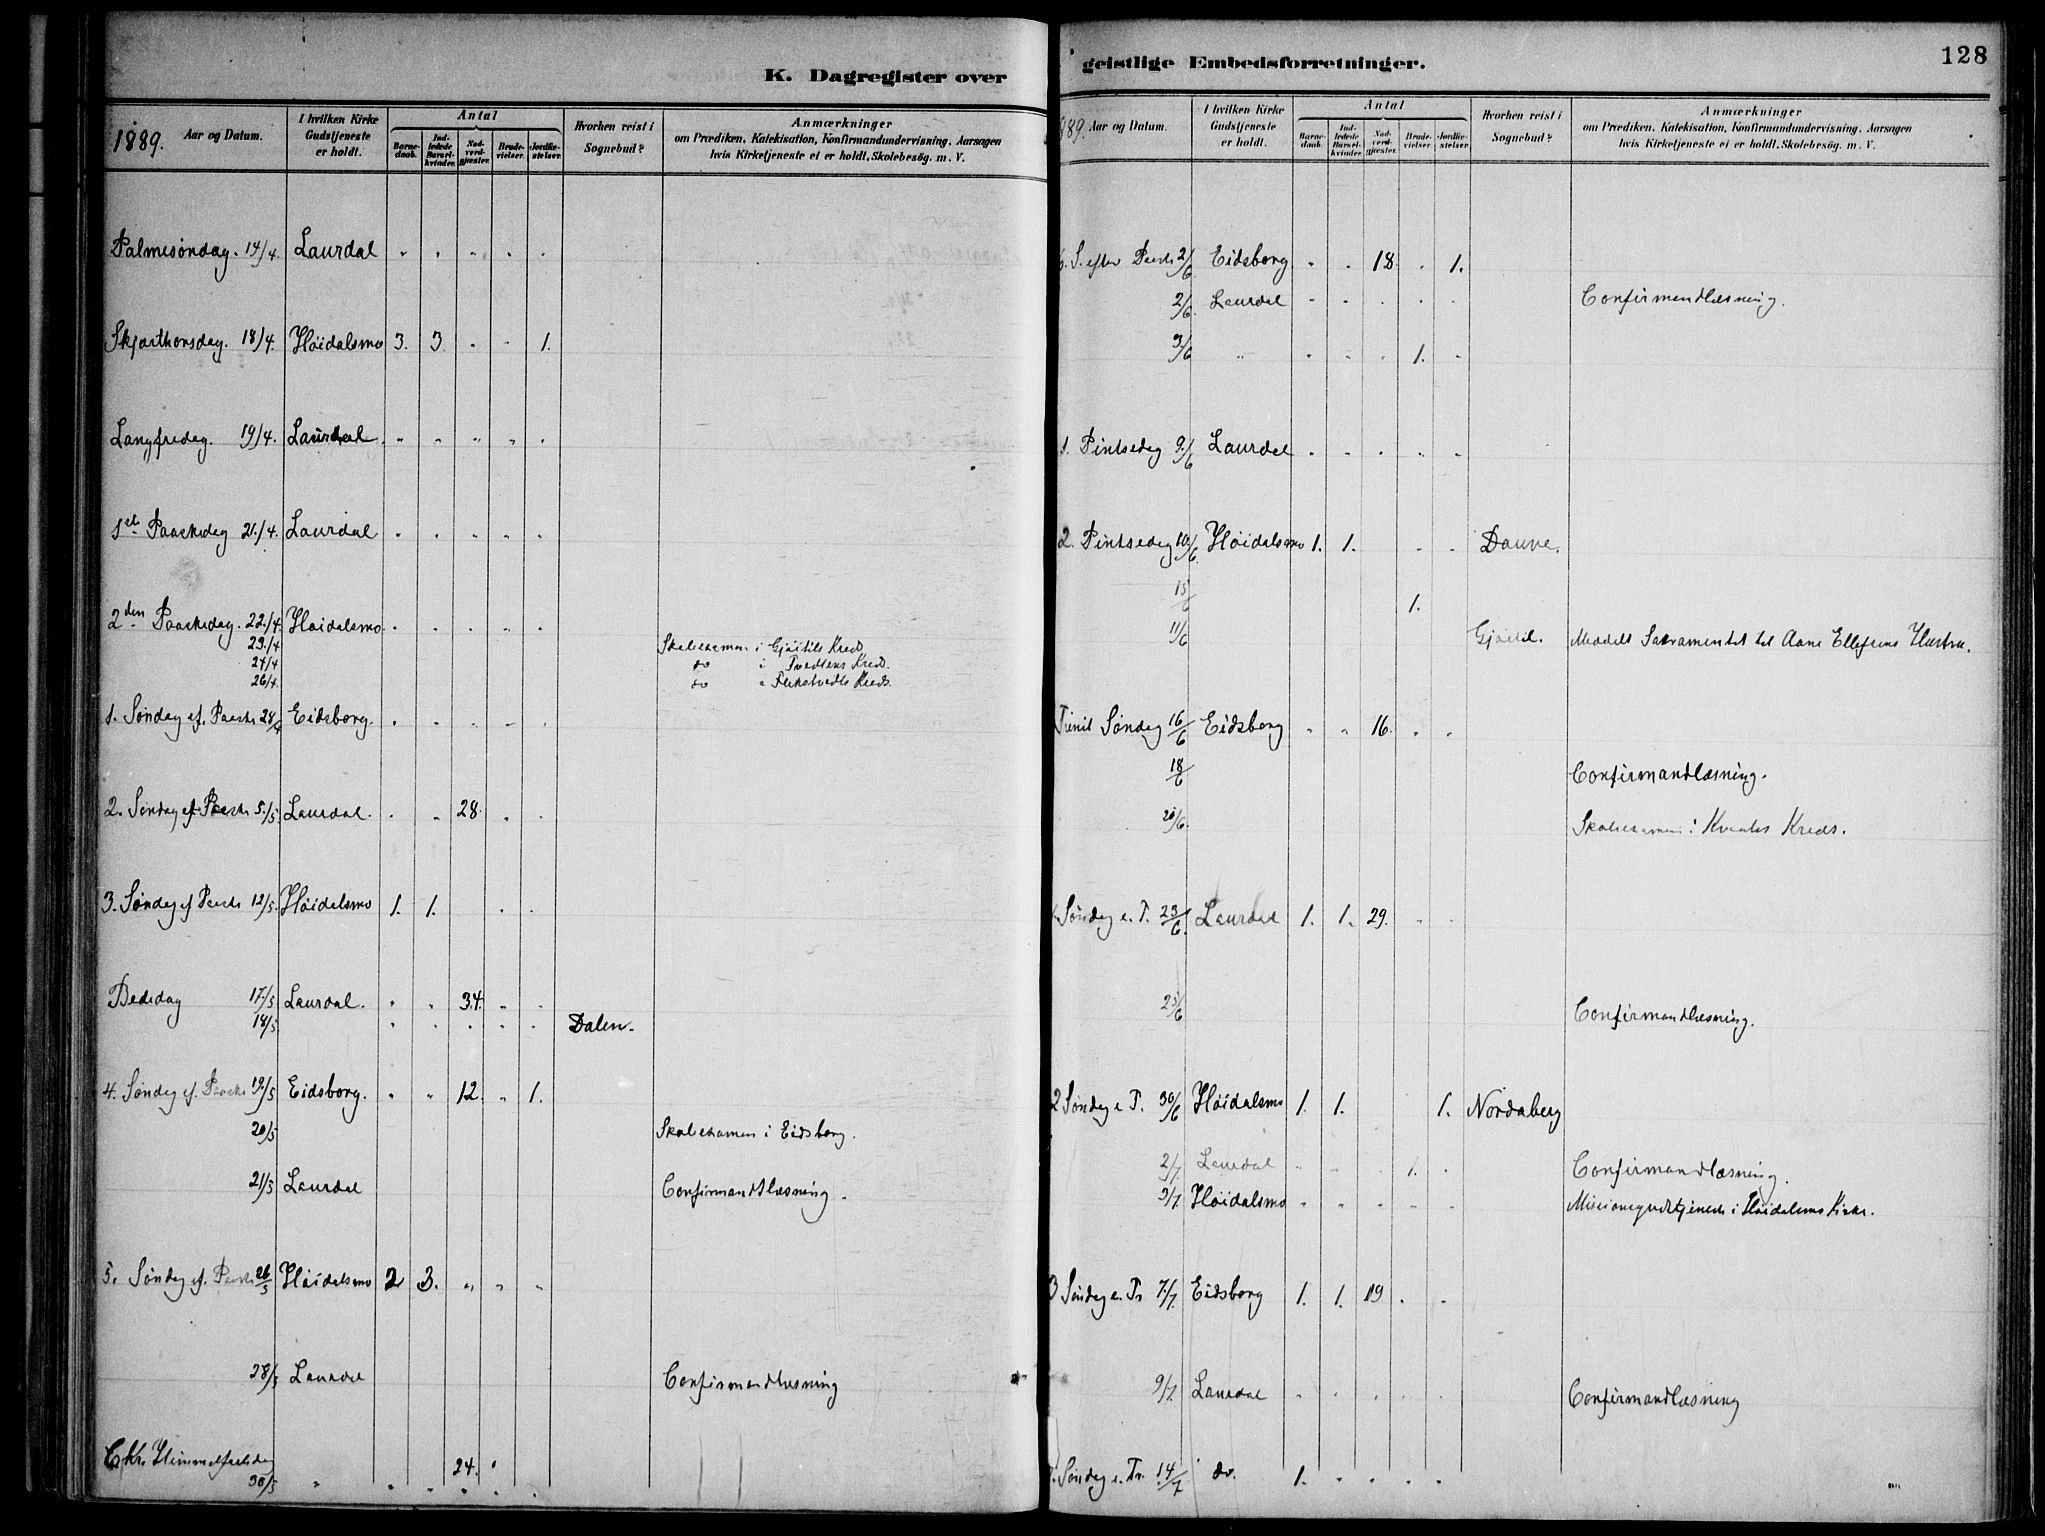 K. Dagregister over
1889. Aar og Datum.
I hvilken Kirke Gudstjeneste er holdt.
Antal
Barne-daab.
Ind-ledede Barsel-kvinder.
Nad-verd-gjester.
Brude-vielser.
Jordfæ-stelser.
Hvorhen reist i Sognebud?
Anmærkninger
om Prædiken, Katekisation, Konfirmandundervisning, Aarsagen
hvis Kirketjeneste ei er holdt, Skolebesög. m. V.
Palmesøndag. 14/4. Laurdal " " " " "
Skjærthorsdag. 18/4. Høidalsmo 3. 3. " " 1.
Langfredag. 19/4. Laurdal. " " " " "
1ste Paaskedag 21/4. Laurdal " " " " "
2den Paaskedag. 22/4. Høidalsmo. " " " " "
23/4 Skoleexamen i Gjøitils Kreds
24/4 do i Kreds.
26/4. do i Kreds.
1. Søndag ef. Paaske 28/4 Eidsborg. " " " " "
2. Søndag ef. Paaske 5/5. Laurdal. " " 28. " "
3. Søndag ef Paaske 12/5. Høidalsmo 1. 1. " "
Bededag 17/5 Laurdal. " " 34. " "
18/5 " " " " " Dalen.
4. Søndag ef. Paaske 19/5 Eidsborg. " " 12. " 1.
20/5 Skoleexamen i Eidsborg.
21/5 Laurdal Confirmandlæsning.
5. Søndag ef. Paaske 26/5 Høidalsmo 2 3. " " "
28/5 Laurdal Confirmandlæsning
Kr. Himmelfartsdag 24. "
30/5 " " " " " "
geistlige Embedsforretninger.
128
889. Aar og Datum.
I hvilken Kirke Gudstjeneste er holdt.
Antal
Barne-daab.
Ind-ledede Barsel-kvinder.
Nad-verd-gjester.
Brude-vielser.
Jordfæ-stelser.
Hvorhen reist i Sognebud?
Anmærkninger
om Prædiken, Katekisation, Konfirmandundervisning, Aarsagen
hvis Kirketjeneste ei er holdt, Skolebesög. m. V.
6. S. efter Paaske 2/6 Eidsborg " " 18. " 1.
2/6. Laurdal " " " " " Confirmandlæsning.
3/6 " " " " 1. "
1. Pintsedag 9/6 Laurdal " " " " "
2. Pintsedag 10/6. Høidalsmo 1. 1. " " Daure.
15/6 1.
11/6 Gjøitil. Meddelt Sacramentet til Aane Ellefsens Hustru.
Trinit Søndag 16/6 Eidsborg " " 16. " "
18/6 Confirmandlæsning.
20/6. Skoleexamen i Kreds.
Søndag e. T. 23/6. Laurdal 1. 1. 29. " "
25/6 Confirmandlæsning.
2 Søndag e T. 30/6 Høidalsmo 1. 1. 1. Nordaberg
2/7. Laurdal " " " 1. " Confirmandlæsning.
3/7. Høidalsmo " " " " " Missionsgudstjeneste i Høidalsmo Kirke.
3 Søndag e. Tr 7/7. Eidsborg 1. 1. 19 " "
9/7. Laurdal " " " " " Confirmandlæsning
Søndag e. Tr. 14/7 do. 1. " " " "